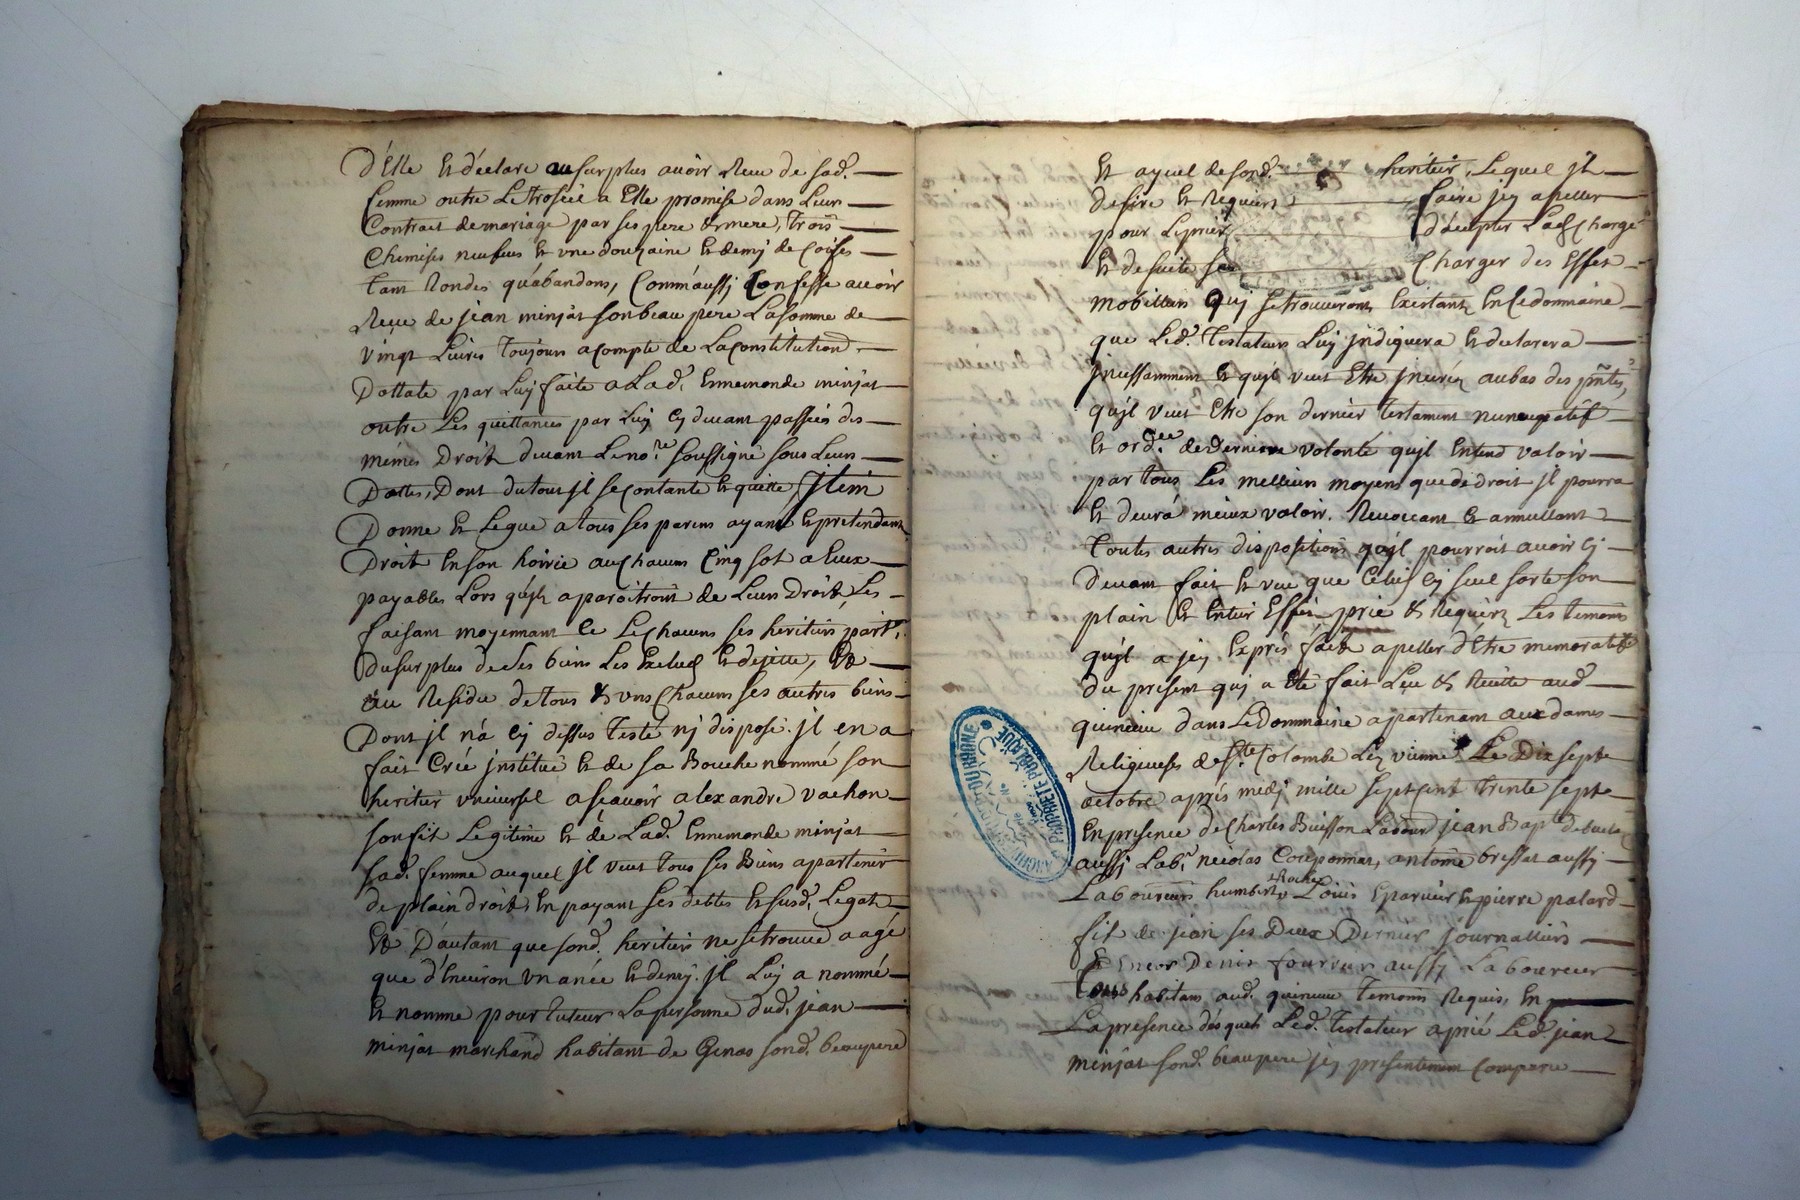 D'Elle et déclare au surplus avoir Receu de sad.
femme outre Le trosseil a Elle promise dans Leur
Contrat de mariage par ses pere & mere, trois
Chemises neufves et vne douzaine et demy de Coiffes
tant Rondes qu'abandons, Comm'aussy Confesse avoir
Receu de jean minjat son beau pere La somme de
vingt Livres toujours a compte de La constitution
Dottale par Luy faite a Lad. Ennemonde minjat
outre Les quittances par Luy Cy devant passées des
mémes Droits devant Le no.re soussigné sous Leurs
Dattes, Dont du tout jl se contante et quitte, jtem
Donne et Legue a tous ses parens ayant et pretendant
Droit En son hoirie au chacun Cinq sol a Eux
payables Lors qu'jls aparoitront de Leurs Droits, Les
faisant moyennant Ce Les chacuns ses heritiers part.
du surplus de ses biens Les Exclud et dejette, Et
au Residu de tous & vns Chacuns ses autres biens
Dont jl n'a Cy dessus Testé ny disposé. jl en a
fait Créé jnstitué et de sa Bouche nommé son
heritier vniversel a scavoir alexandre vachon
son fis Legitime et de Lad. Ennemonde minjat
sad. femme auquel jl veut tous ses Biens apartenir
de plain droit, En payant ses debtes et susd. Legats
Et D'autant que sond. heritier ne se trouve aagé
que d'Environ vn anée et demy. jl Luy a nommé
et nomme pour tuteur La personne dud. jean
minjat marchand habitant de Genas sond. beaupere
Et ayeul de sond. heritier, Lequel jl
desire et Requiert faire jcy apeller
pour Le prier d'accepter Lad. Charge
Et de suite se Charger des Effets
mobilliers quj se trouveront Existant En Ce dommaine
que Led. Testateur Luy jndiquera et declarera
jncessamment et qu'jl veut Etre jnserés au bas des p̃ntes,
qu'jl veut Etre son dernier Testament nuncupatif
Et ord.ce de Derniere volonté qu'jl Entend valoir
par tous Les mellieurs moyens que de droit jl pourra
Et devra mieux valoir. Revocant et annullant
Toutes autres dispositions qu'jl pourroit avoir Cy
Devant fait Et veu que Celuis Cy seul sorte son
plain Et Entier Effet, prie & Requiert Les temoins
qu'jl a jcy Exprés faits apeller d'Etre memoratifs
du present quj a Eté fait Leu & Recité aud.
quincieu dans Le Dommaine apartenant aux dames
Religieuses de S.te Colombe Lez vienne Le Dix sept
octobre aprés medj mille sept cent Trente sept
En presence de Charles Buisson Labour. jean Bap.te
aussy Lab.r nicolas Couponnat, antoine Bressat aussy
Laboureurs humbert Rochex Loüis Eparvier et pierre palard
fis de jean ses Deux Dernier journalliers
Denis fourrur aussy Laboureur
Tous habitans aud. quincieu temoins Requis, En
La presence desquels Led. Testateur a prié Led. jean
minjat sond. beaupere jcy presentement Comparu
ARCHIVES DEP. DU RHONE
PROPRIETE PUBLIQUE